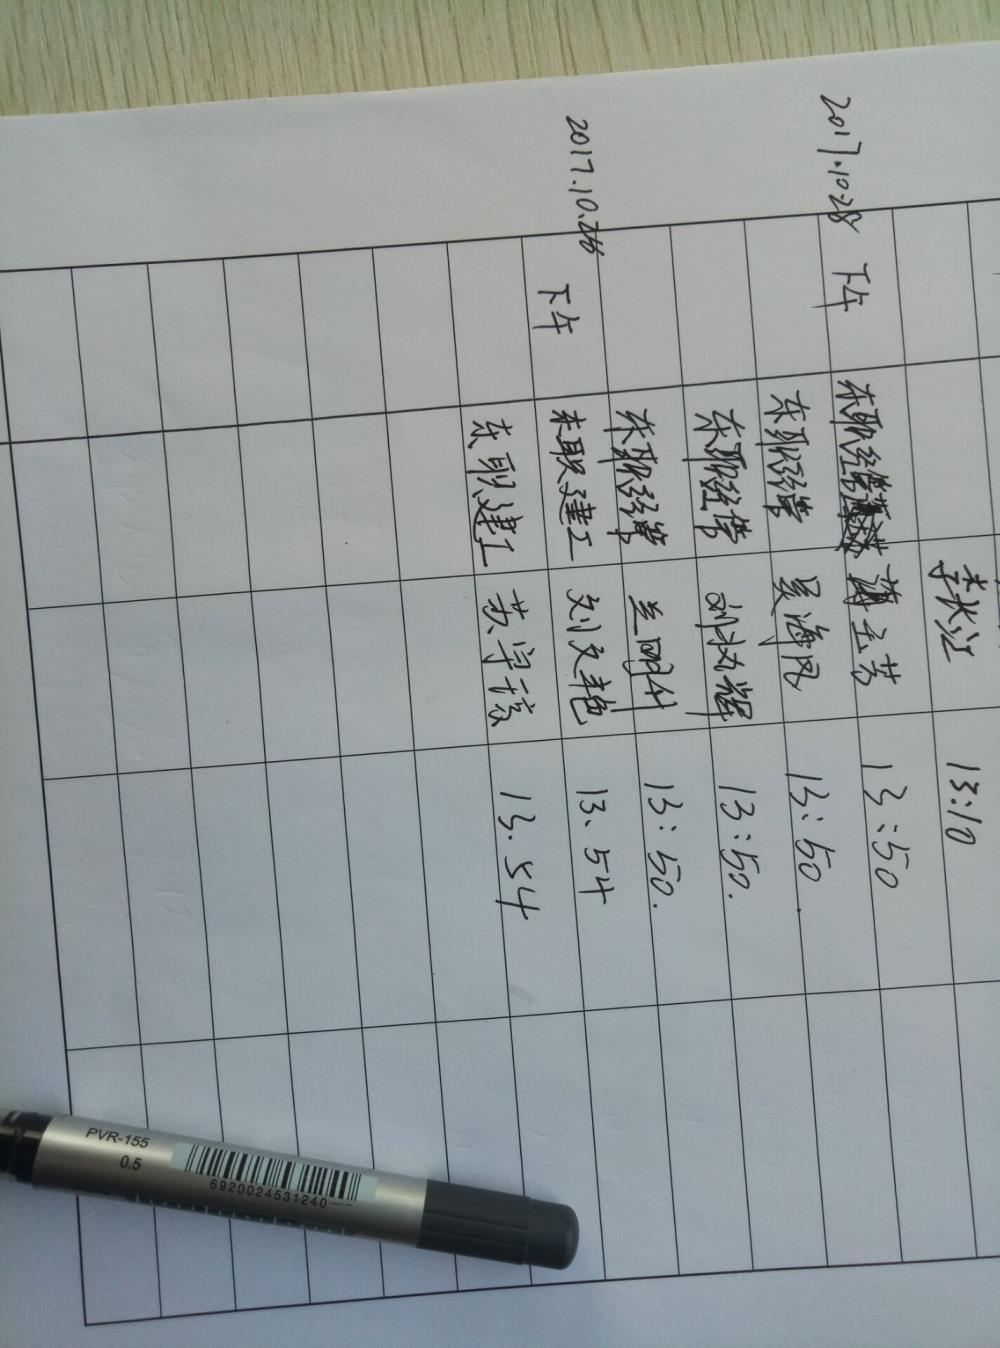 李长江 13:10
2017.10.28 下午 东职经管 蒲玉芳 13:50
东职经管 吴海凤 13:50
东职经管 13:50.
东职经管 兰明什 13:50.
2017.10.28 下午 东职建工 刘文艳 13.54
东职建工 苏宇 13.54
PVR-155
0.5
6920024531240